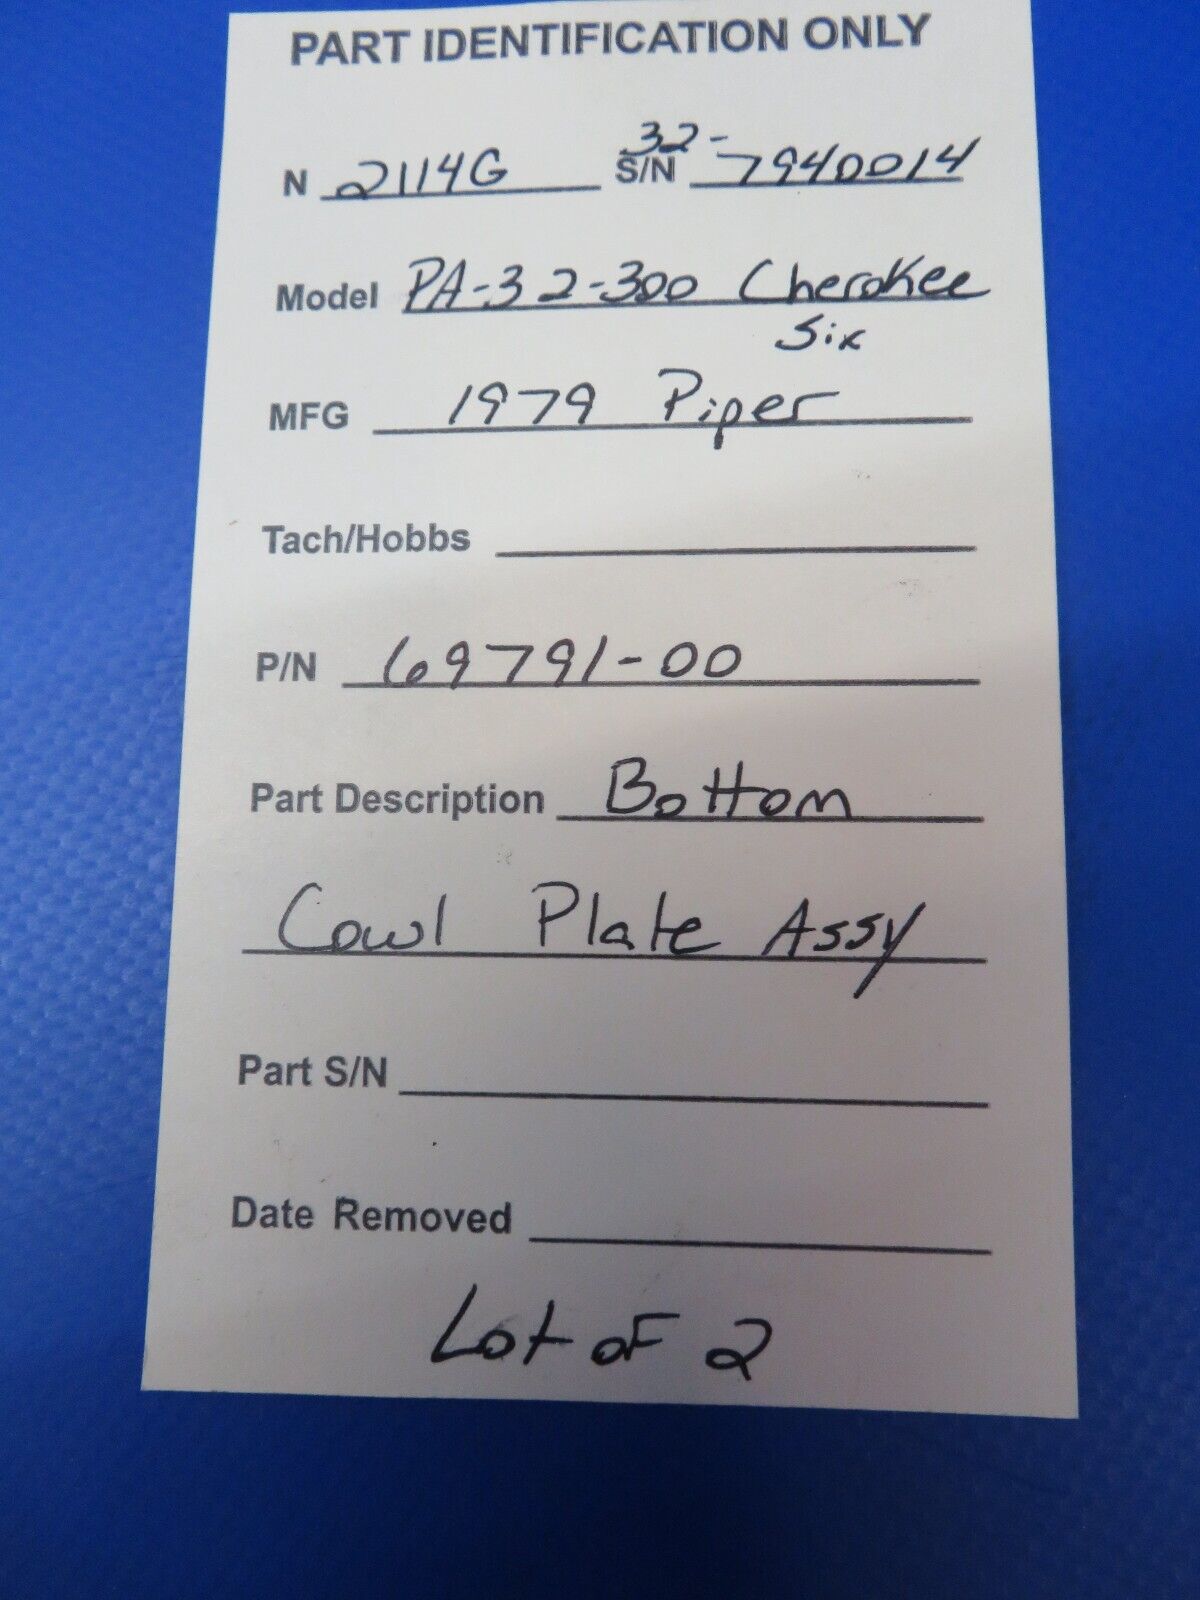 PART IDENTIFICATION ONLY
N 2114G S/N 32-7940014
Model PA-32-300 Cherokee
Six
MFG 1979 Piper
Tach/Hobbs
P/N 69791-00
Part Description Bottom
Cowl Plate Assy
Part S/N
Date Removed
Lot of 2